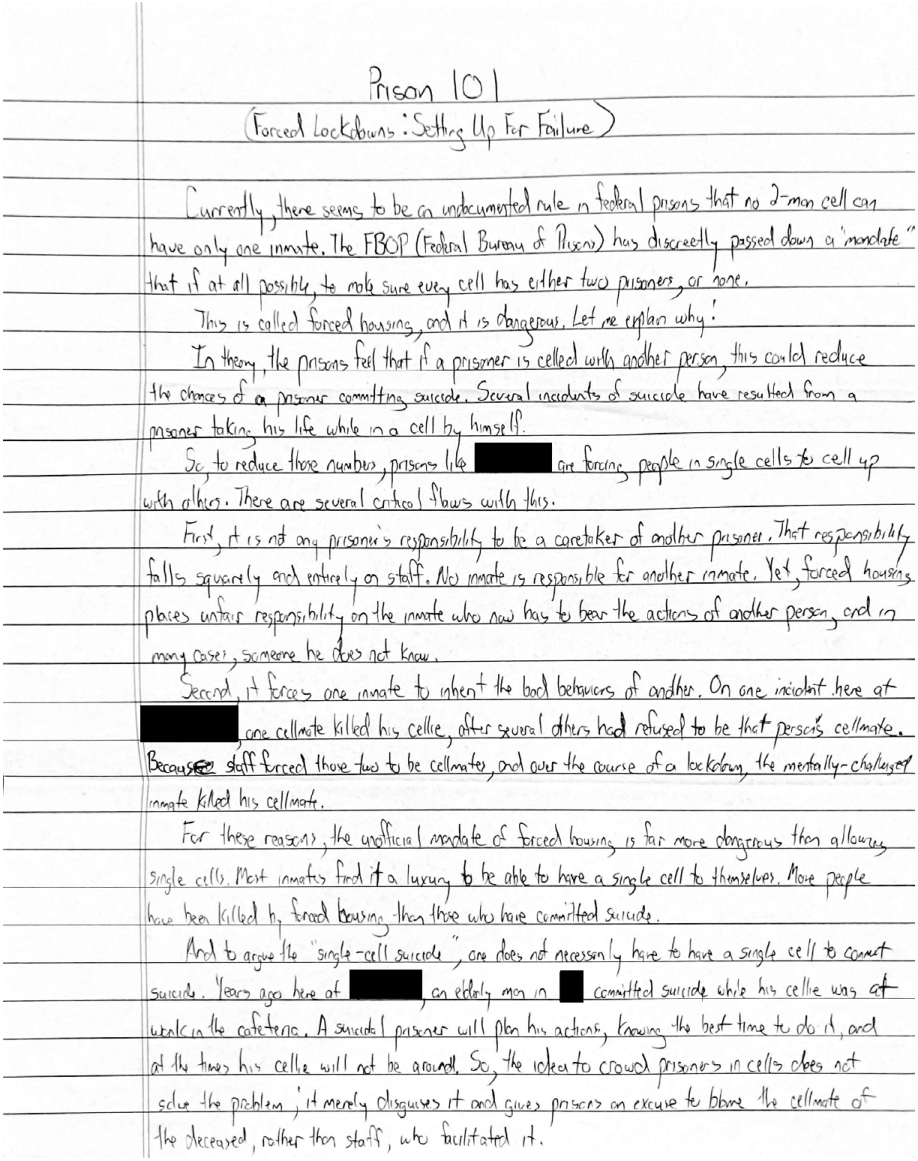 Prison 101
(Forced Lockdowns: Setting Up For Failure)
Currently, there seems to be an undocumented rule in federal prisons that no 2-man cell can
have only one inmate. The FBOP (Federal Bureau of Prisons) has discreetly passed down a "mandate"
that if at all possible, to make sure every cell has either two prisoners, or none.
This is called forced housing, and it is dangerous. Let me explain why:
In theory, the prisons feel that if a prisoner is celled with another person, this could reduce
the chances of a prisoner committing suicide. Several incidents of suicide have resulted from a
prisoner taking his life while in a cell by himself.
So, to reduce those numbers, prisons like are forcing people in single cells to cell up
with others. There are several critical flaws with this.
First, it is not any prisoner's responsibility to be a caretaker of another prisoner. That responsibility
falls squarely and entirely on staff. No inmate is responsible for another inmate. Yet, forced housing
places unfair responsibility on the inmate who now has to bear the actions of another person, and in
many cases, someone he does not know.
Second, it forces one inmate to inherit the bad behaviors of another. On one incident here at
, one cellmate killed his cellie, after several others had refused to be that person's cellmate.
Because staff forced those two to be cellmates, and over the course of a lockdown, the mentally-challenged
inmate killed his cellmate.
For these reasons, the unofficial mandate of forced housing is far more dangerous than allowing
single cells. Most inmates find it a luxury to be able to have a single cell to themselves. More people
have been killed by forced housing than those who have committed suicide.
And to argue the "single-cell suicide", one does not necessarily have to have a single cell to commit
suicide. Years ago here at , an elderly man in committed suicide while his cellie was at
work in the cafeteria. A suicidal prisoner will plan his actions, knowing the best time to do it, and
at the times his cellie will not be around. So, the idea to crowd prisoners in cells does not
solve the problem; it merely disguises it and gives prisons an excuse to blame the cellmate of
the deceased, rather than staff, who facilitated it.